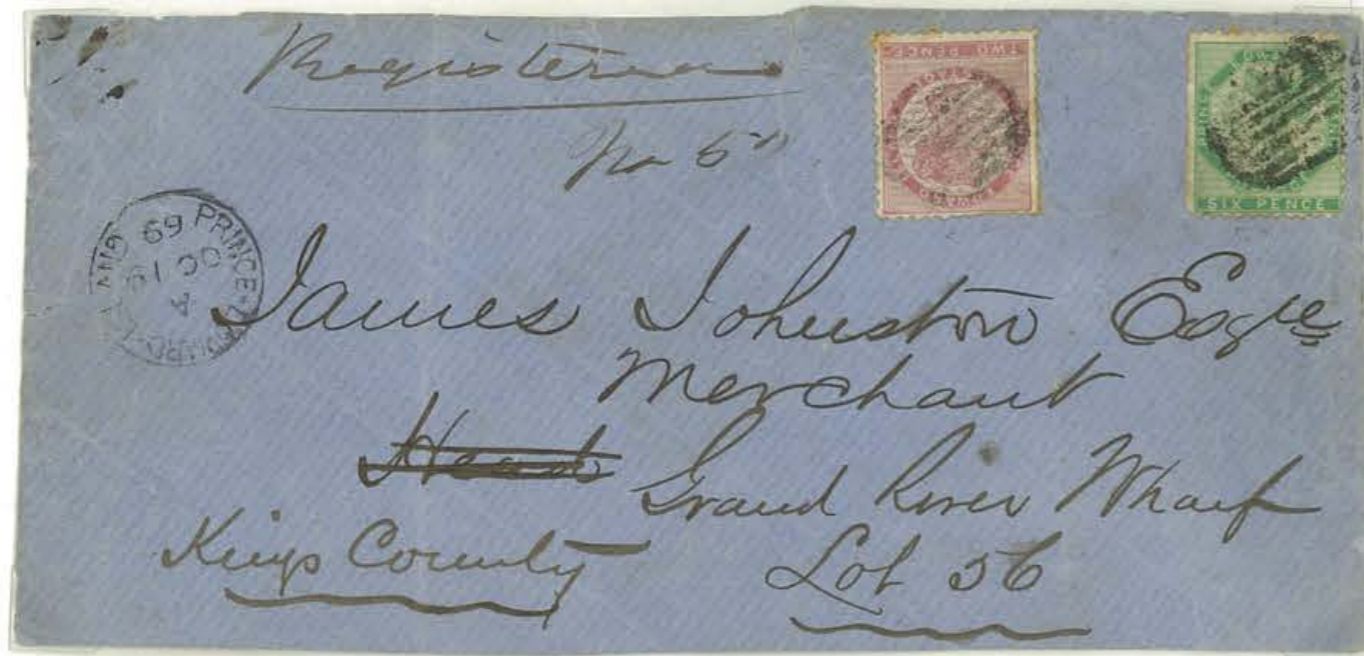 Registered
No 50
TWO PENCE
SIX PENCE
PRINCE EDWARD ISLAND
OC 19
69
James Johnston Esqre
Merchant
Head Grand River Wharf
Kings County Lot 56